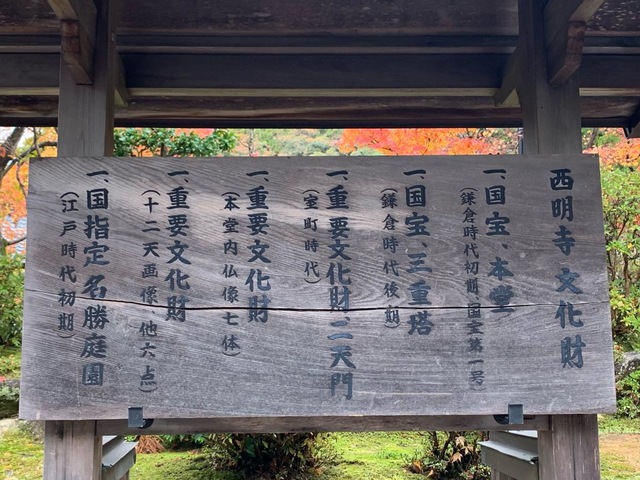 西明寺 文化財
一、国宝、本堂
(鎌倉時代初期、国宝第一号)
一、国宝、三重塔
(鎌倉時代後期)
一、重要文化財、二天門
(室町時代)
一、重要文化財
(本堂内仏像七体)
一、重要文化財
(十二天画像、他六点)
一、国指定名勝庭園
(江戸時代初期)